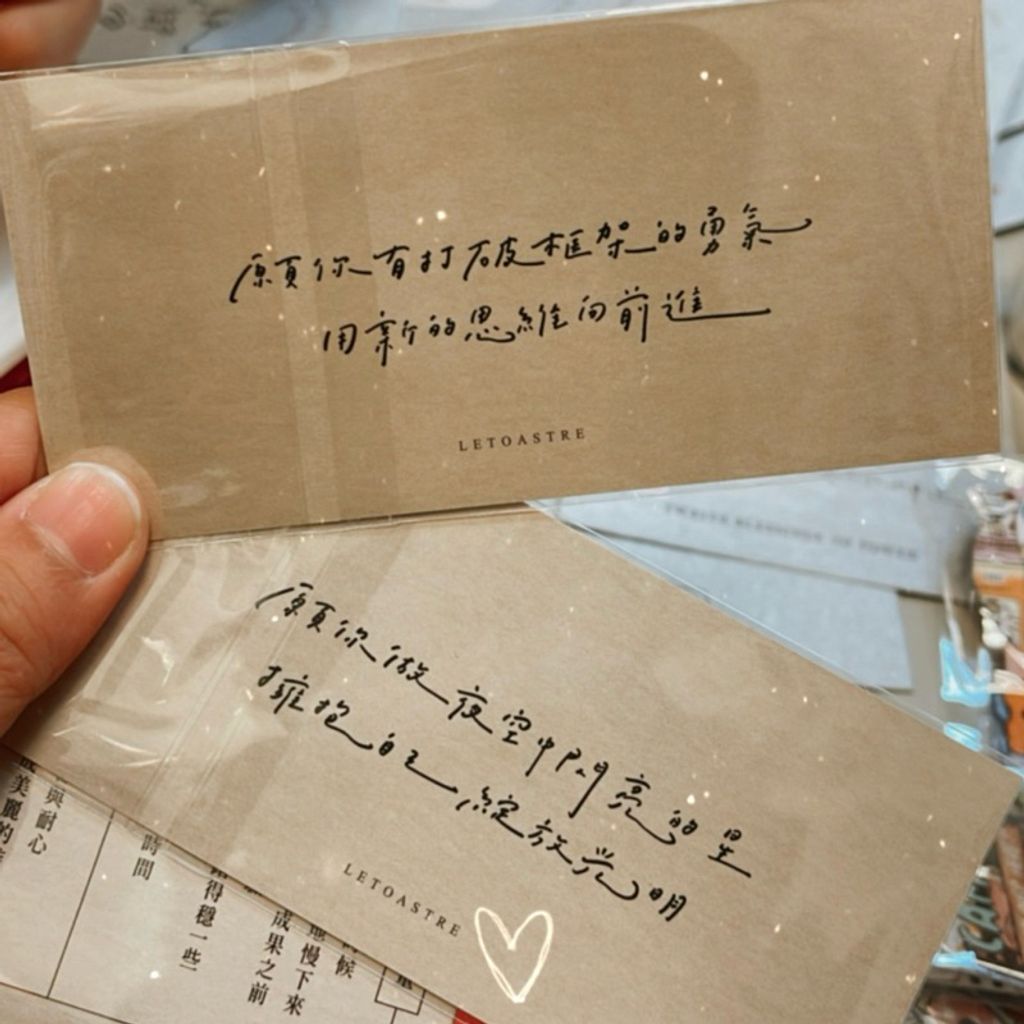 願你有打破框架的勇氣
用新的思維向前進
LETOASTRE
願你做夜空中閃亮的星
擁抱自己綻放光明
LETOASTRE
與耐心
美麗的
時間
得穩一些
成果之前
慢下來
時候